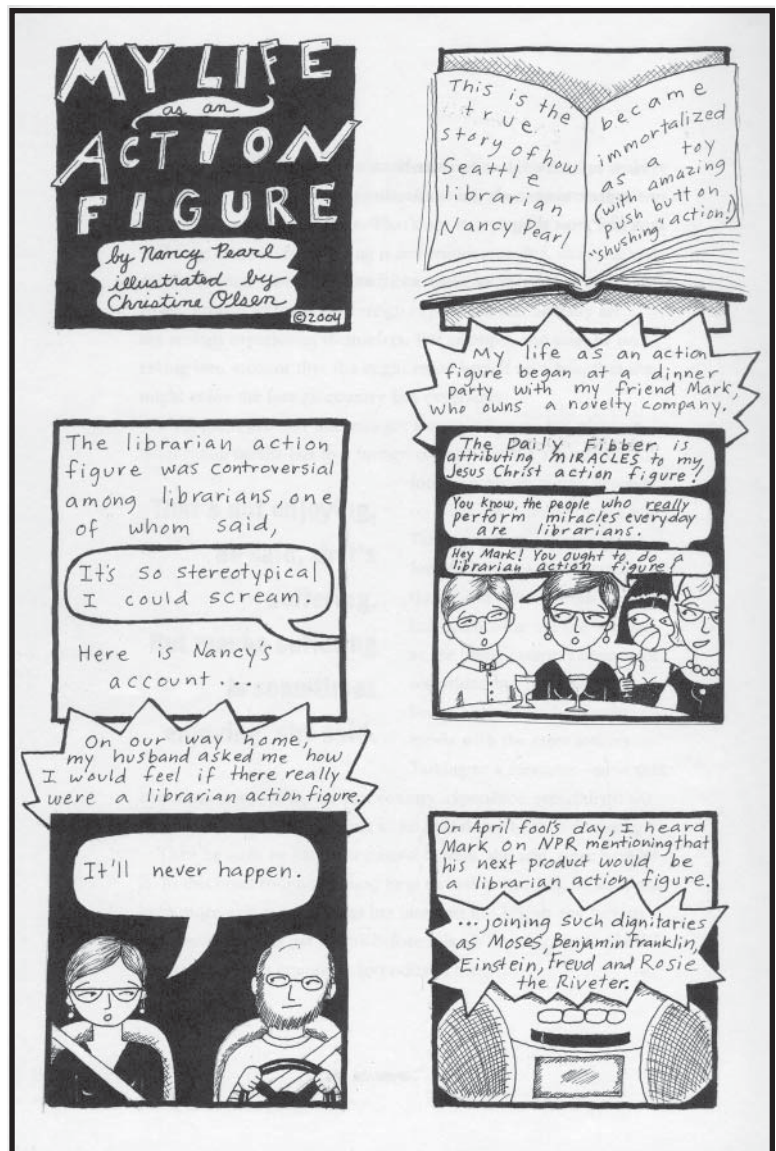 MY LIFE
as an
ACTION
FIGURE
by Nancy Pearl
illustrated by
Christine Olsen
©2004
This is the
true
story of how
Seattle
librarian,
Nancy Pearl
became
immortalized
as a toy
(with amazing
push button
"shushing" action!)
The librarian action
figure was controversial
among librarians, one
of whom said,
It's so stereotypical
I could scream.
Here is Nancy's
account....
My life as an action
figure began at a dinner
party with my friend Mark,
who owns a novelty company.
The Daily Fibber is
attributing MIRACLES to my
Jesus Christ action figure!
You know, the people who really
perform miracles everyday
are librarians.
Hey Mark! You ought to do a
librarian action figure!
On our way home,
my husband asked me how
I would feel if there really
were a librarian action figure.
It'll never happen.
On April fool's day, I heard
Mark on NPR mentioning that
his next product would be
a librarian action figure.
...joining such dignitaries
as Moses, Benjamin Franklin,
Einstein, Freud and Rosie
the Riveter.